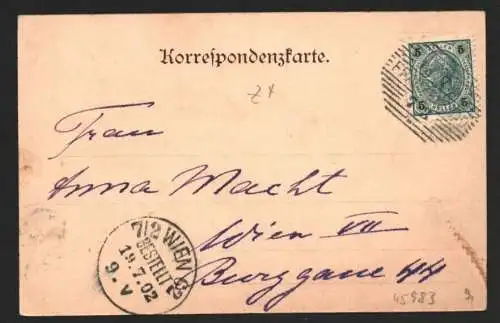 Korrespondenzkarte.
5 5
5 HELLER 5
Z+
Frau
Anna Macht
Wien VII
Burggasse 44
7/2 WIEN 63
BESTELLT
19.7.02
9-V
45983